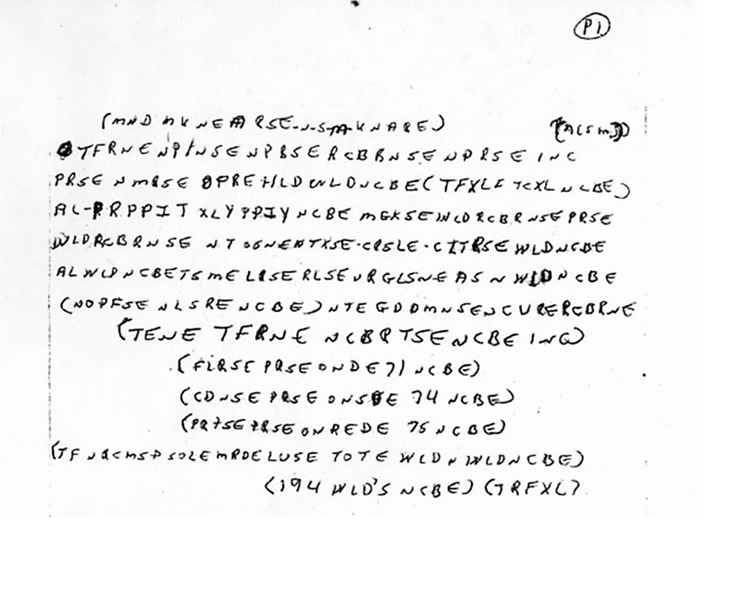 P1
(MND MKNEARSE-N-S-M-KNARE) (ACSM)
TFRNENPINSENPBSERCBBRNSENPRSEINC
PRSENMRSEOPREHLDWLDNCBE(TFXLF TCXLNCBE)
AL-PRPPIT XLYPPIY NCBE MGKSEWLDRCBRNSEPRSE
WLDRCBRNSE NTSGNENTXSE-CRSLE-CITRSEWLDNCBE
ALWLDNCBETSMELRSERLSEURGLSNEASNWLDNCBE
(NOPFSENLSRENCBE)NTEGDDMNSENCURERCBRNE
(TENE TFRNE NCBRTSENCBEING)
(FLRSEPRSEONDE71NCBE)
(CDNSEPRSEONSDE74NCBE)
(PRTSEPRSEONREDE75NCBE)
(TFNRCMSPSOLEMRDELUSETOTEWLDNWLDNCBE)
(194WLD'SNCBE)(TRFXL)